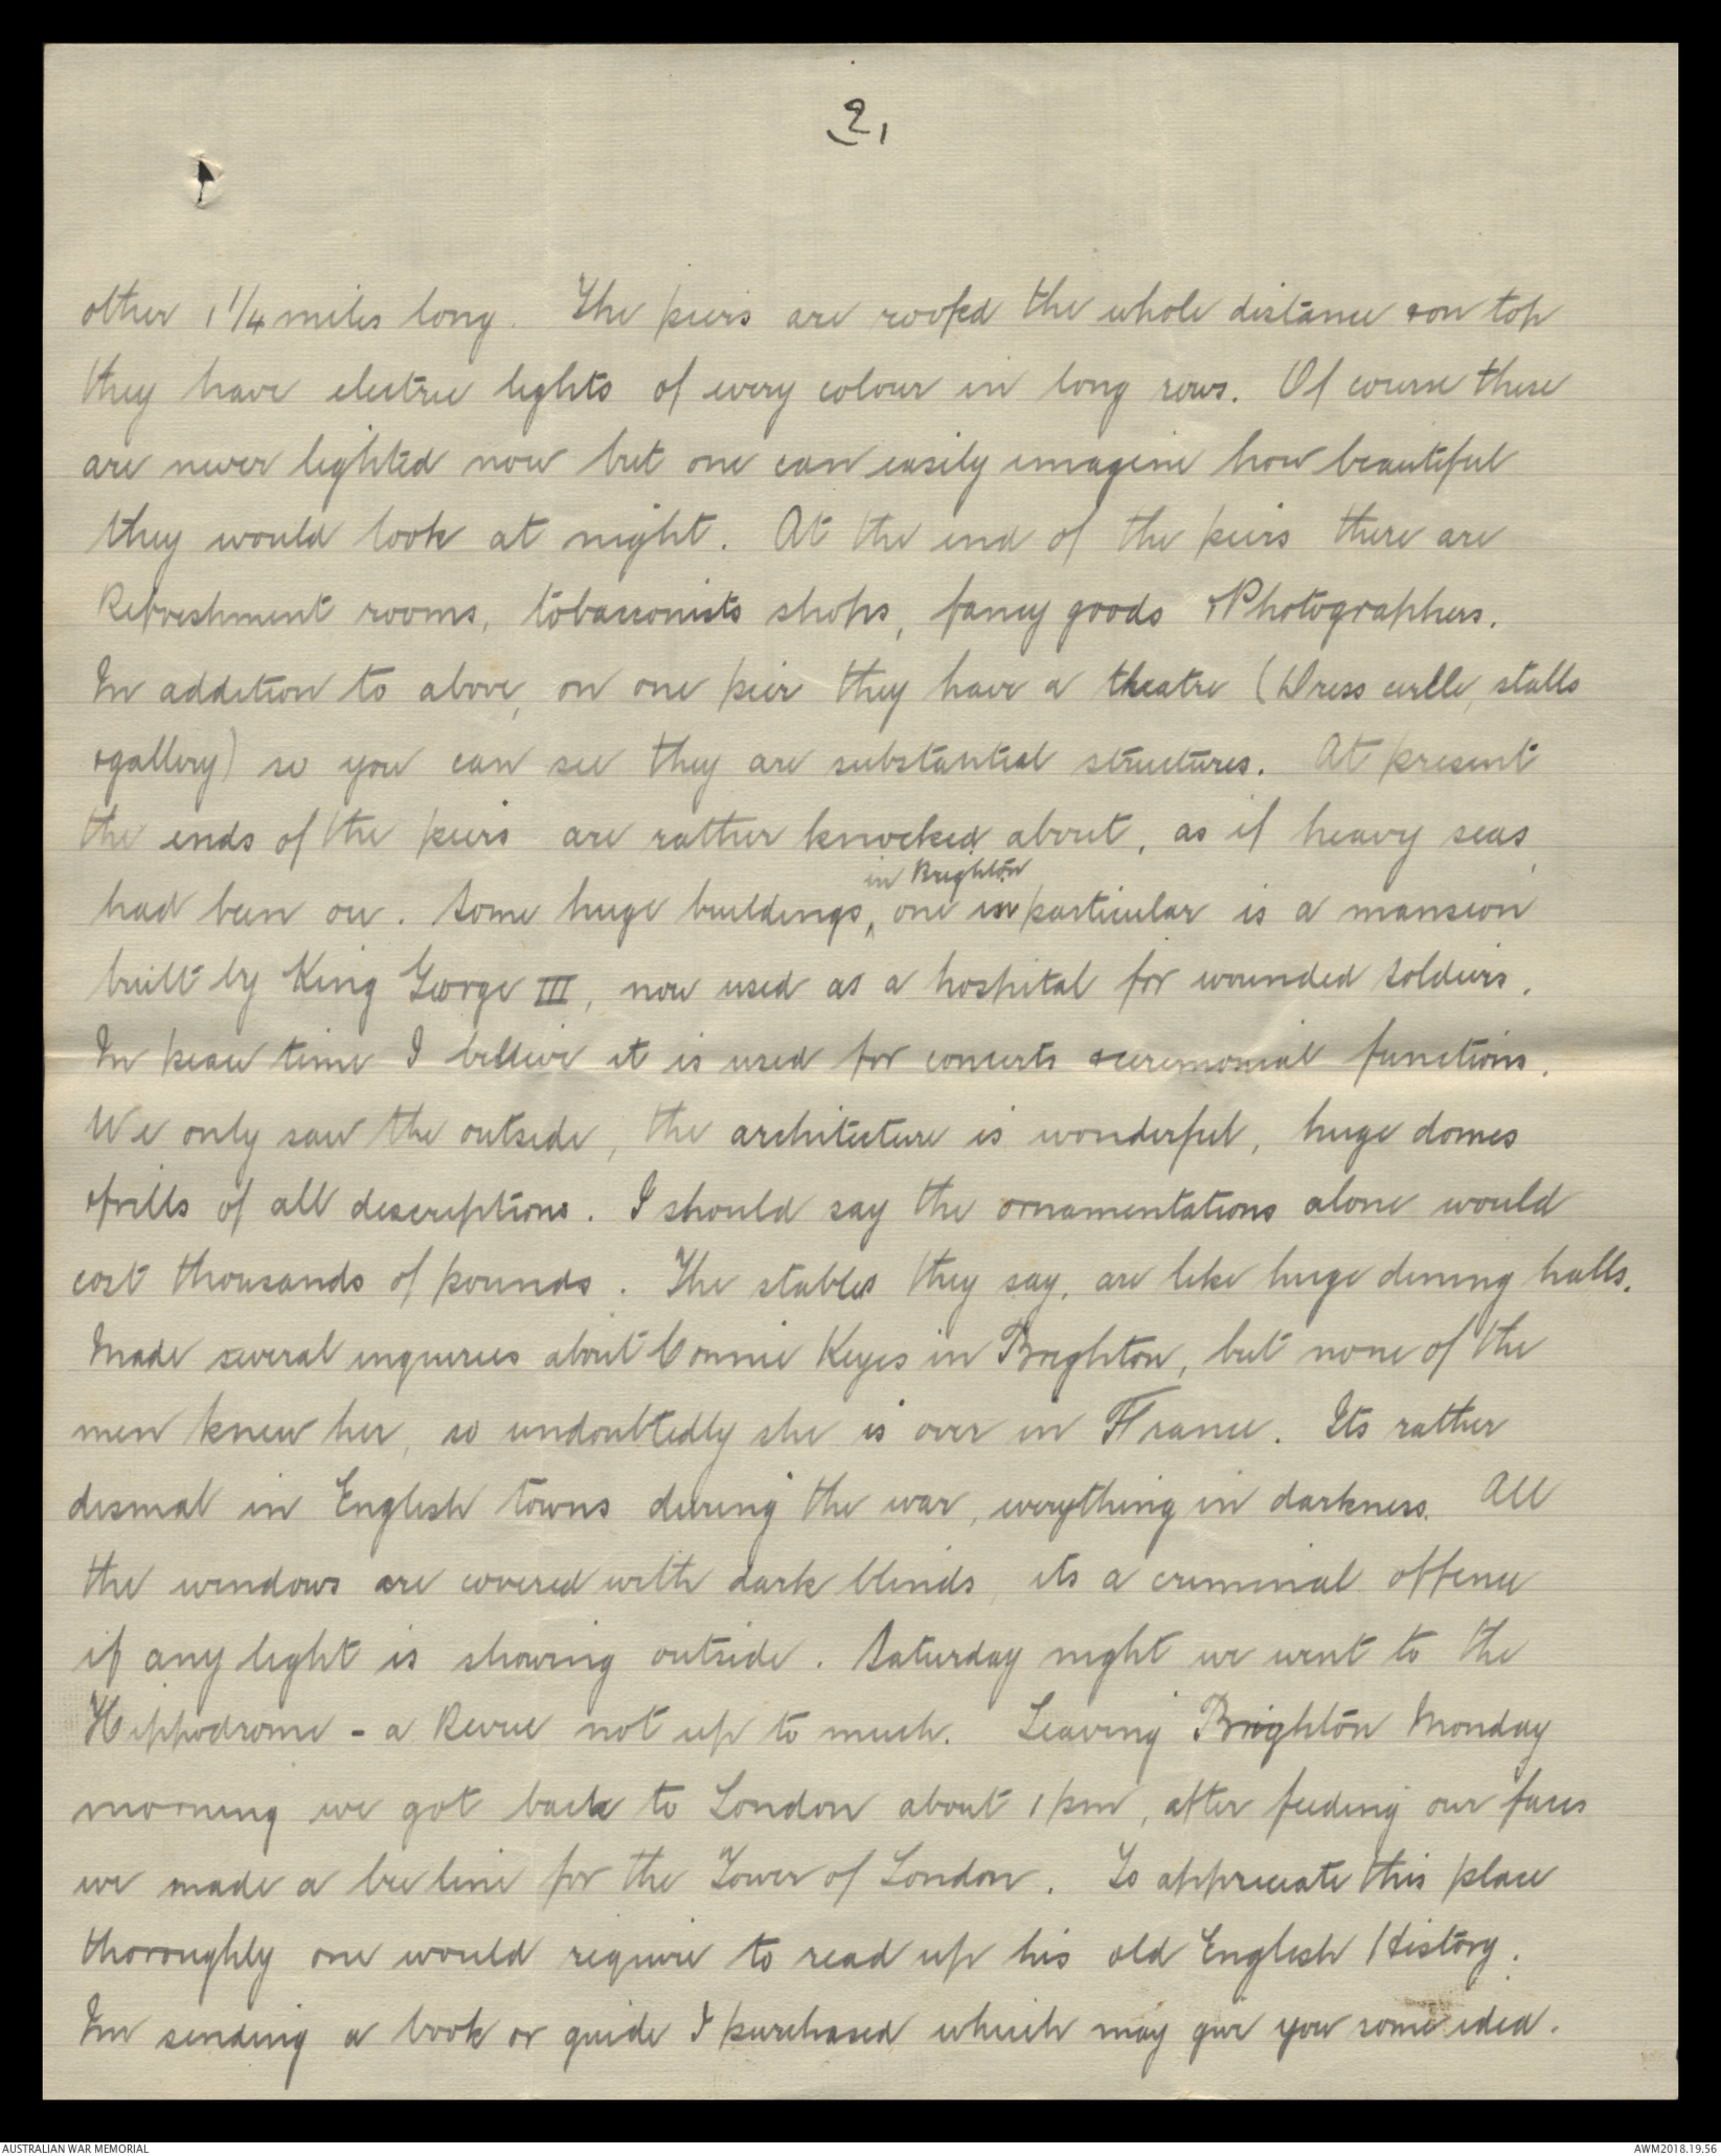 2,
other 1 1/4 miles long. The piers are roofed the whole distance & on top
they have electric lights of every colour in long rows. Of course these
are never lighted now but one can easily imagine how beautiful
they would look at night. At the end of the piers there are
Refreshment rooms, tobacconists shops, fancy goods & Photographers.
In addition to above, on one pier they have a theatre (Dress circle, stalls
& gallery) so you can see they are substantial structures. At present
the ends of the piers are rather knocked about, as if heavy seas
in Brighton
had been on. Some huge buildings, one in particular is a mansion
built by King George III, now used as a hospital for wounded soldiers.
In peace time I believe it is used for concerts & ceremonial functions.
We only saw the outside, the architecture is wonderful, huge domes
& frills of all descriptions. I should say the ornamentations alone would
cost thousands of pounds. The stables they say, are like huge dining halls.
Made several inquiries about Connie Keyes in Brighton, but none of the
men knew her, so undoubtedly she is over in France. Its rather
dismal in English towns during the war, everything in darkness. All
the windows are covered with dark blinds, its a criminal offence
if any light is showing outside. Saturday night we went to the
Hippodrome - a Revue not up to much. Leaving Brighton Monday
morning we got back to London about 1 pm, after feeding our faces
we made a bee line for the Tower of London. To appreciate this place
thoroughly one would require to read up his old English History.
Im sending a book or guide I purchased which may give you some idea.
AUSTRALIAN WAR MEMORIAL
AWM2018.19.56